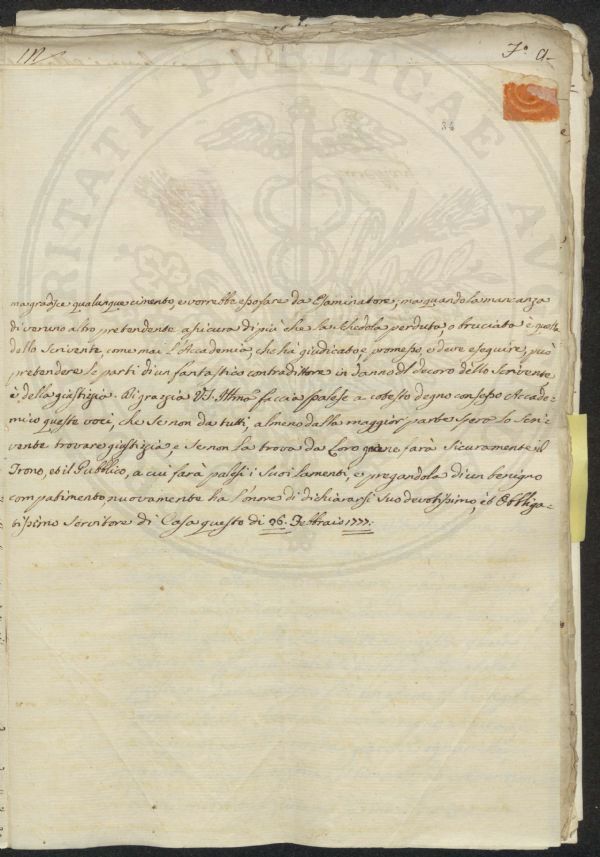 34
ma gradisce qualunque cimento, e vorrebbe esposare da Esaminatore; ma quando la mancanza
di veruno altro pretendente assicura di più che la schedola perduta, o bruciata è quella
dello scrivente, come mai l'Accademia, che ha giudicato, e promesso, e deve eseguire, può
pretendere le parti di un fantastico contradittore in danno del decoro dello scrivente,
e della giustizia. Di grazia V.S. Illma faccia palese a cotesto degno consesso Accade-
mico queste voci, che se non da tutti, almeno dalla maggior parte spera lo scri-
vente trovare giustizia, e se non la trova da loro farà sicuramente il
Trono, et il Pubblico, a cui farà palesi i suoi lamenti, e pregandola di un benigno
compatimento, nuovamente ha l'onore di dichiararsi suo devotissimo, et Obbliga-
tissimo Servitore di Casa questo dì 26. Febbraio 1777.